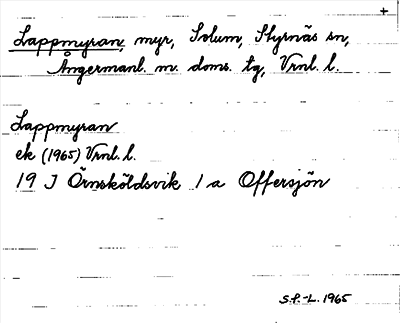 +
Lappmyran, myr, Solum, Styrnäs sn,
Ångermanl. m. doms. tg, Vrnl. l.
Lappmyran
ek (1965) Vrnl. l.
19 J Örnsköldsvik 1 a Offersjön
S.f.-L. 1965